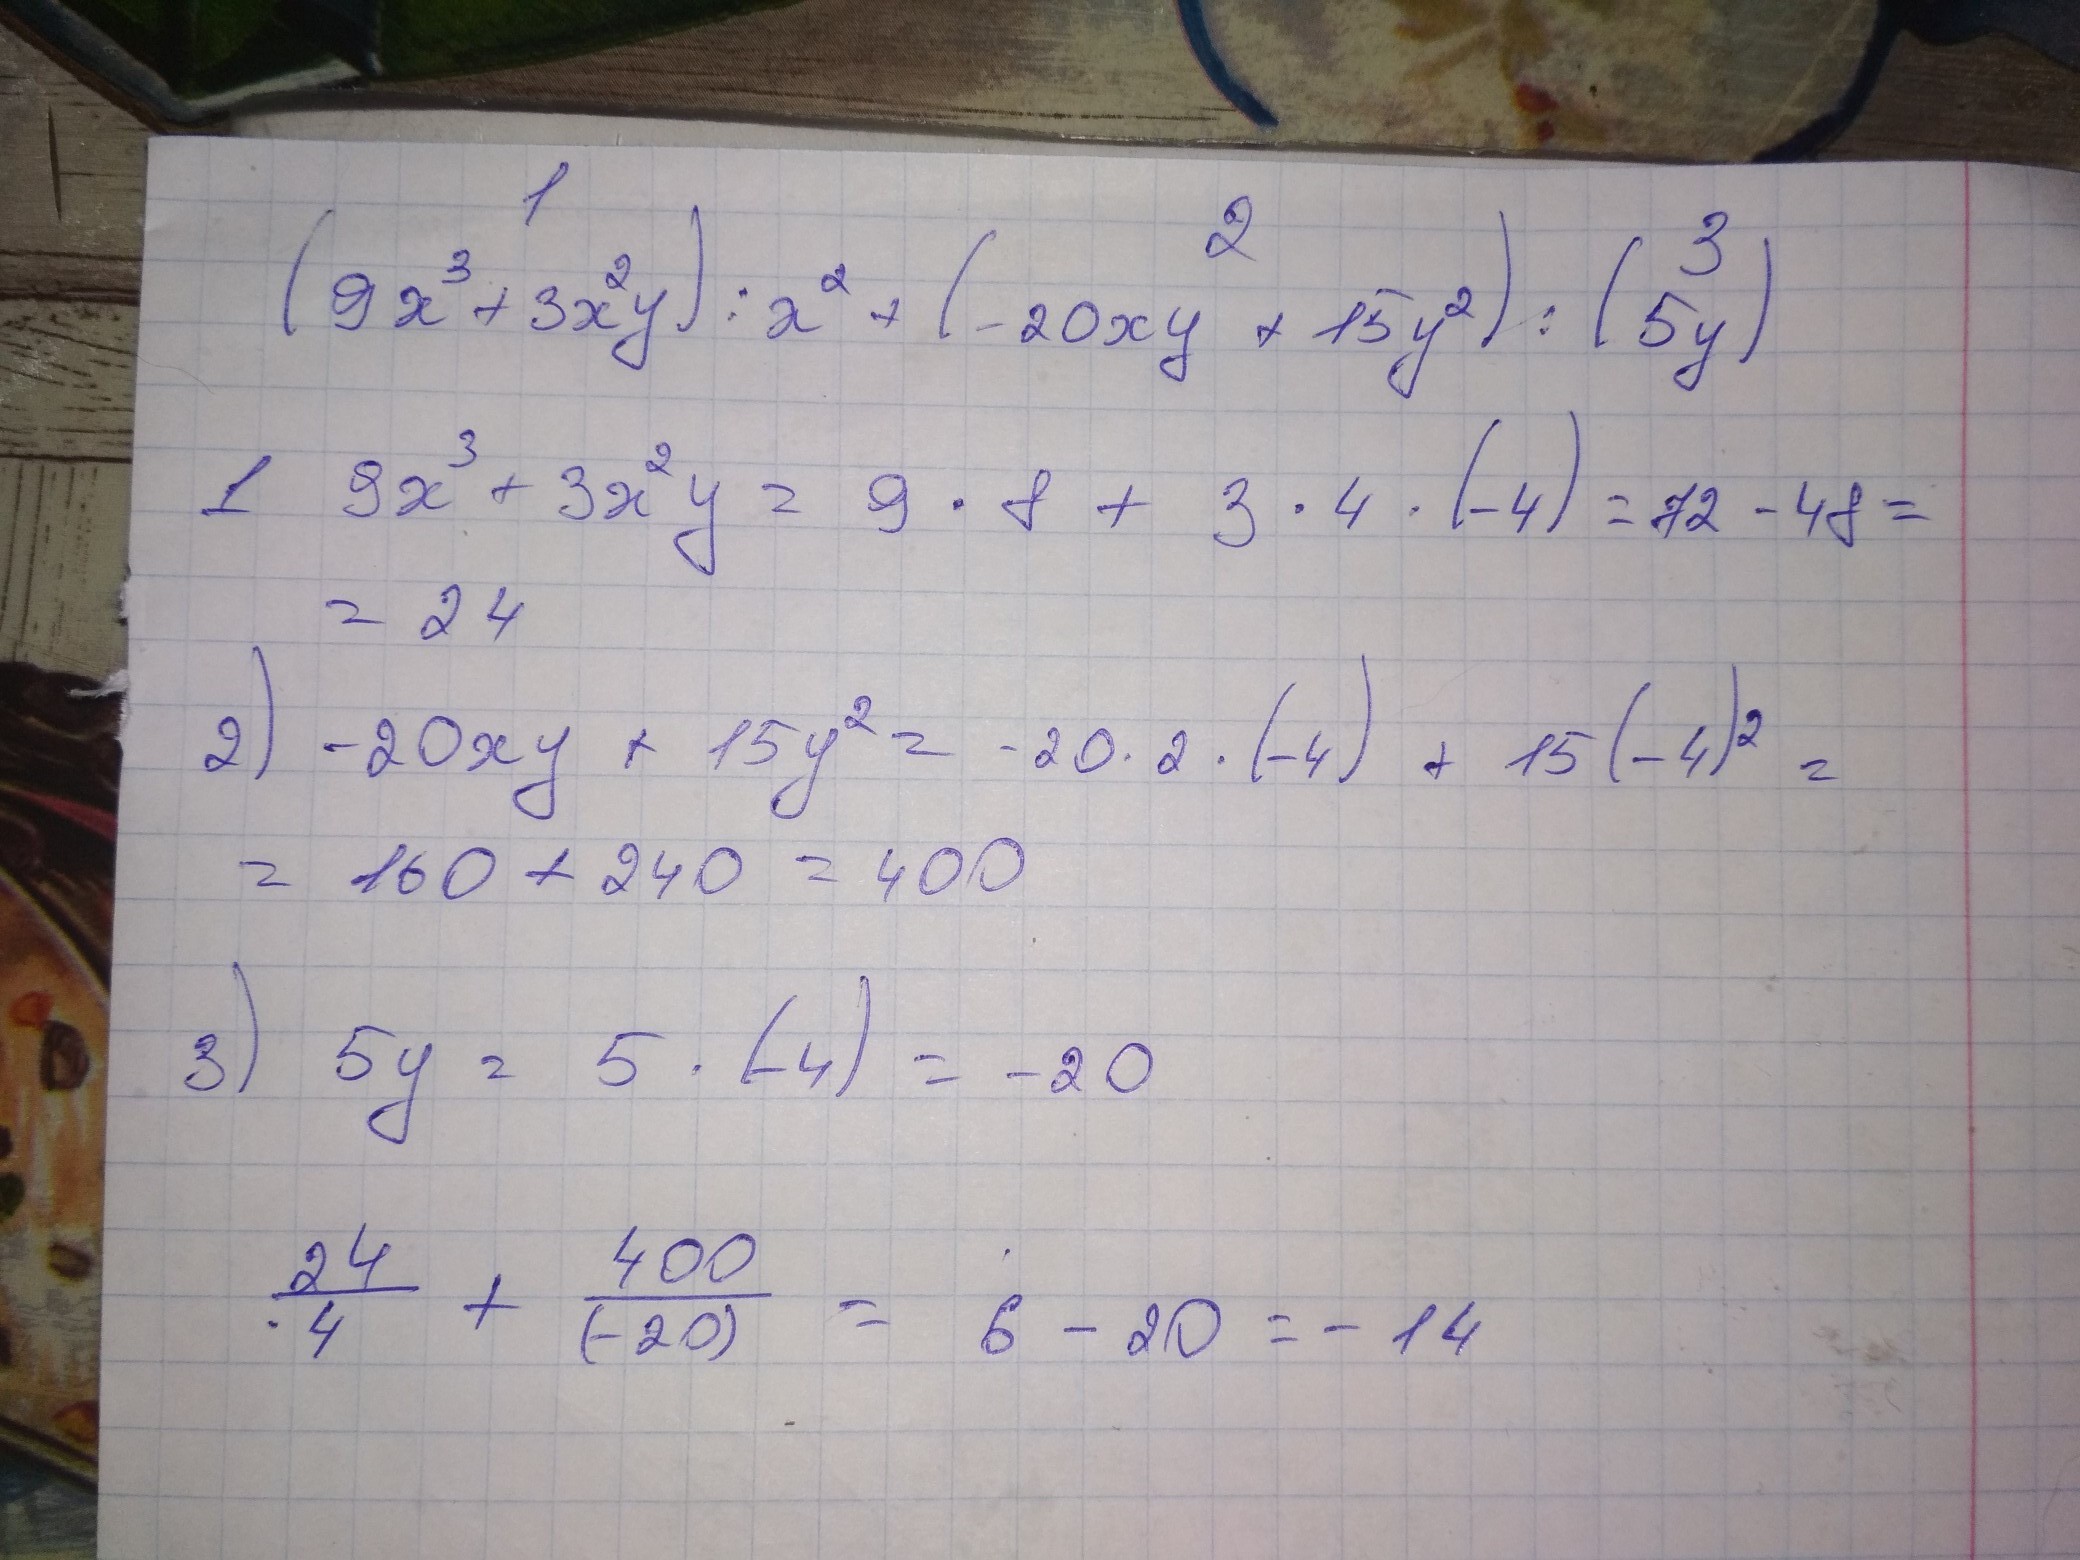 1 2 3
(9x³+3x²y):x²+(-20xy+15y²):(5y)
1 9x³+3x²y=9·8+3·4·(-4)=72-48=
=24
2) -20xy+15y²=-20·2·(-4)+15(-4)²=
=160+240=400
3) 5y=5·(-4)=-20
24/4+400/(-20)=6-20=-14